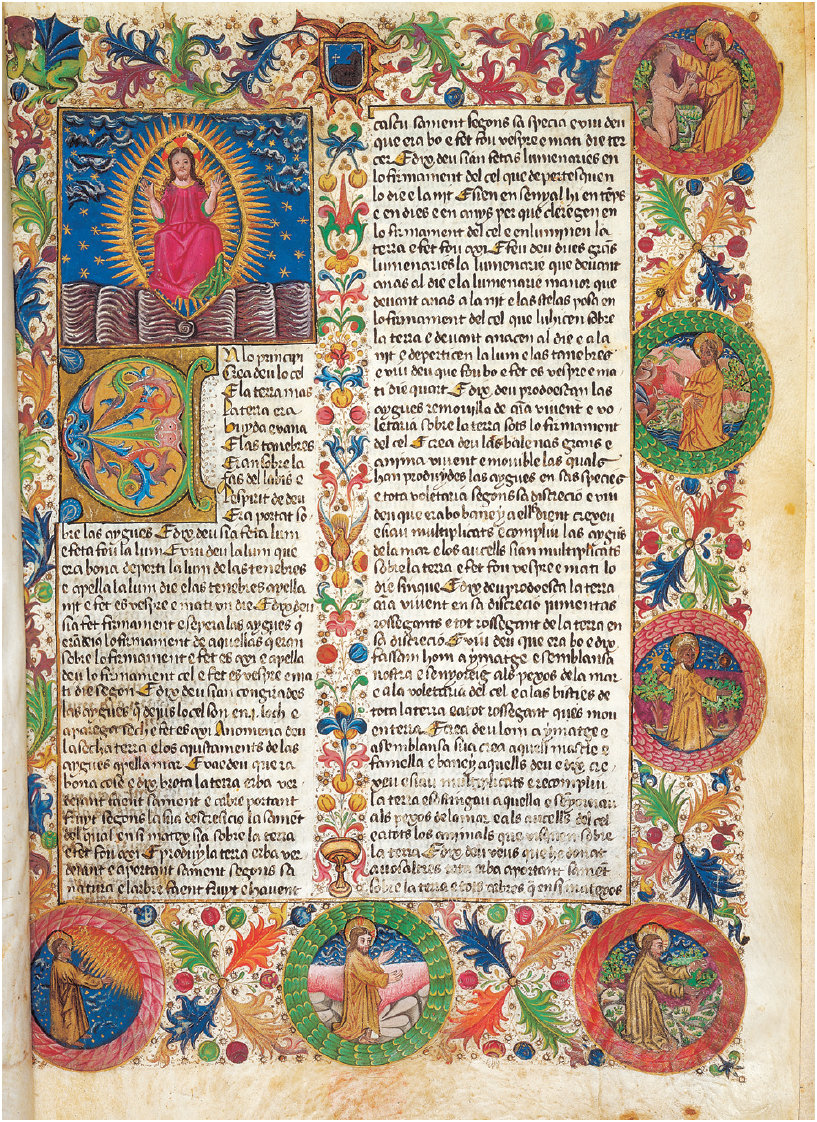 N lo principi
Crea deu lo cel
E la terra mas
La terra era
buyda e vana
E las tenebres
Eran sobre la
fas del labis e
lespirit de deu
Era portat so
bre las aygues Edix deu sia feta lum
e feta fou la lum E viu deu la lum que
era bona departi la lum de las tenebres
e apella la lum die e las tenebres apella
nit e fet es vespre e mati un die Edix deu
sia fet firmament e separa las aygues q
eran deio lo firmament de aquellas q eran
sobre lo firmament e fet es axi e apella
deu lo firmament cel e fet es vespre e ma
ti die segon Edix deu sian congregades
las aygues q dejus lo cel son en .j. loch e
aparega secha e fet es axi Anomena deu
la secha terra e los ajustaments de las
aygues apella mar E vae deu que era
bona cosa e dix brota la terra erba ver
dejant faent sament e arbre portant
fruyt segons la sua descrescio la sament
del qual en si matex sia sobre la terra
e fet fou axi E produy la terra erba ver
dejant e aportant sament segons sa
natura e larbre faent fruyt e havent
cascu sament segons sa specia e viu deu
que era bo e fet fou vespre e mati die ter
cer Edix deu sian fetas lumenaries en
lo firmament del cel que departesquen
lo die e la nit E sien en senyal hi en temps
e en dies e en anys per que claregen en
lo firmament del cel e enlumnen la
terra e fet fou axi E feu deu dues grans
lumenaries la lumenarie que devant
anas al die e la lumenarie manor que
devant anas a la nit e las stelas posa en
lo firmament del cel que luhicen sobre
la terra e devant anacen al die e a la
nit e departicen la lum e las tanebres
e viu deu que fou bo e fet es vespre e ma
ti die quart Edix deu prodoescan las
aygues removilla de aia vivent e vo
letaria sobre la terra sots lo firmament
del cel E crea deu las balenas grans e
anima vivent e movible las quals
han produydes las aygues en sas species
e tota voletaria segons sa discrecio e viu
deu que era bo e beney a ells dient crexeu
e siau multiplicats e compliu las aygues
de la mar e los aucells sian multiplicats
sobre la terra e fet fou vespre e mati lo
die sinque Edix deu prodoesca la terra
aia vivent en sa discrecio jumentas
rossegants e tot rossegant de la terra en
sa discrecio E viu deu que era bo e dix
fassam hom a ymatge e semblansa
nostra e senyoreig als pexos de la mar
e a la voletaria del cel e a las bisties de
tota la terra e a tot rossegant ques mou
en terra E crea deu lom a ymatge e
a semblansa sua crea aquell mascle e
famella e beney aquells deu e dix cre
xeu e siau multiplicats e recompliu
la terra e sotsmgau a quella e senyorau
als pexos de la mar e als aucells del cel
e a tots los animals que sobre
la terra Edix deu veus que he donat
a vosaltres tota erba aportant sament
sobre la terra e tots arbres q en si matexos